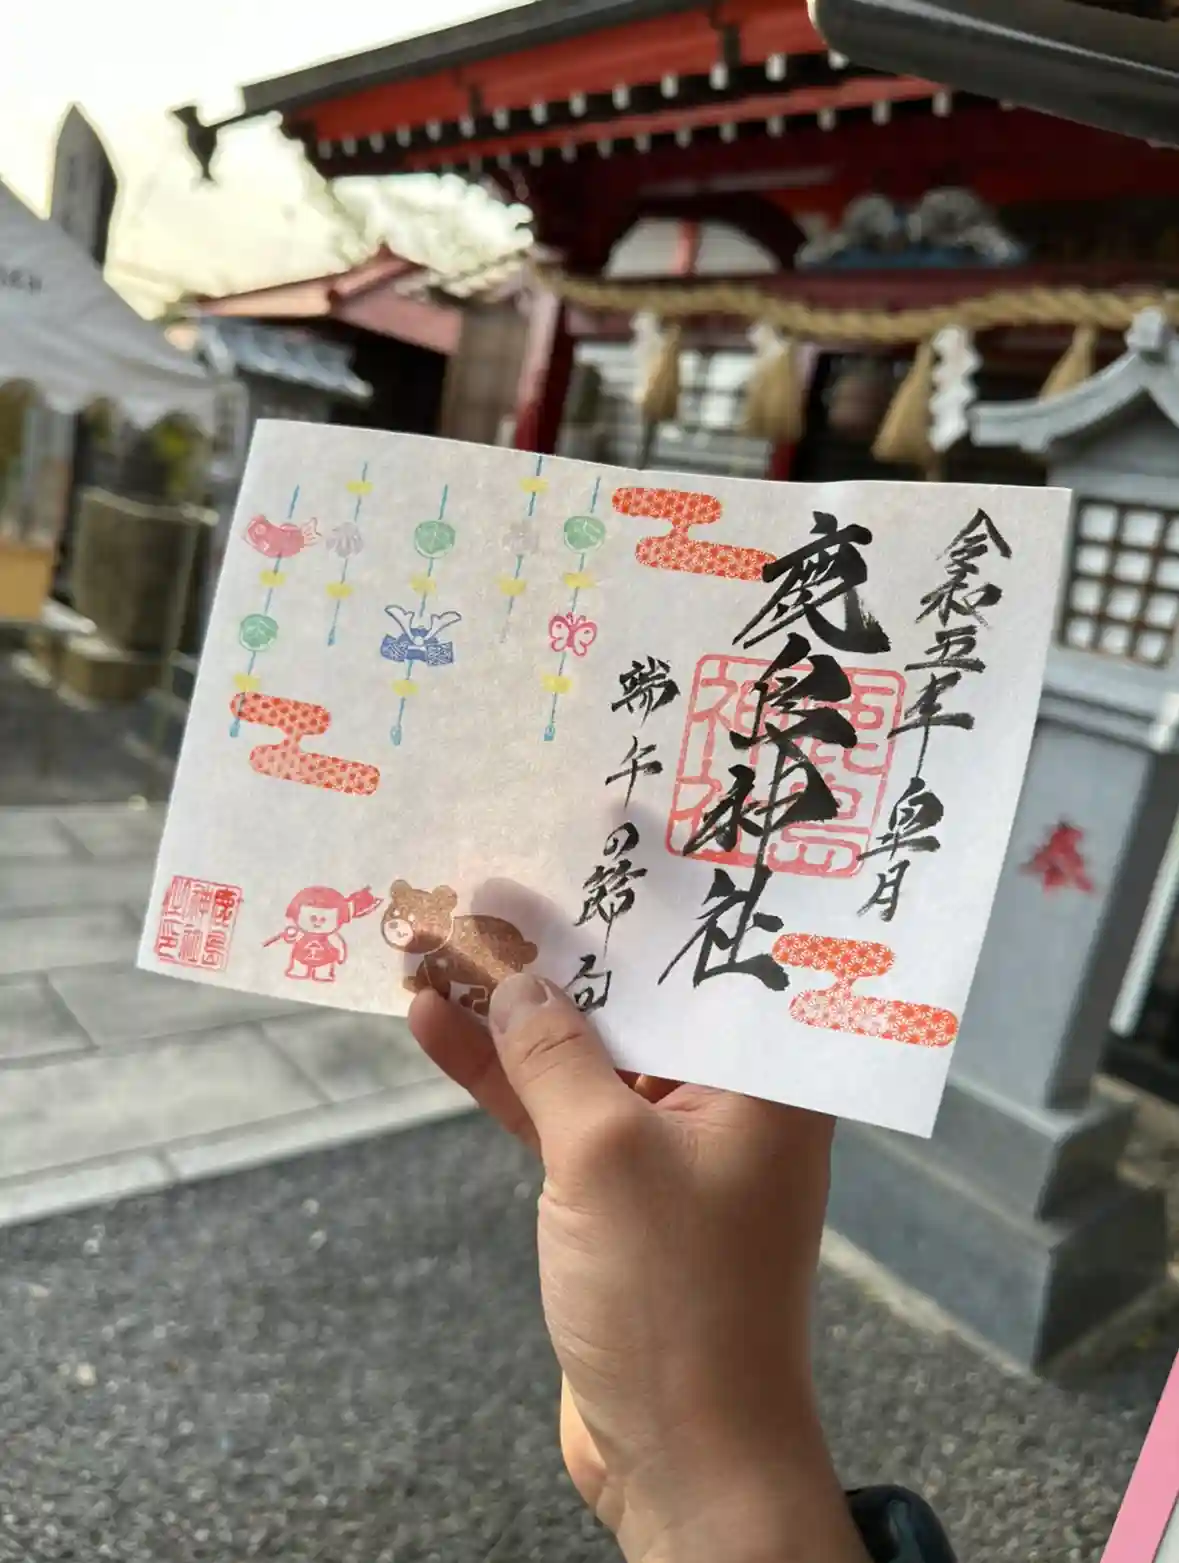 令和五年皐月
鹿島神社
鹿島
神社
端午の節句
金
鹿島
神社
之印
奉